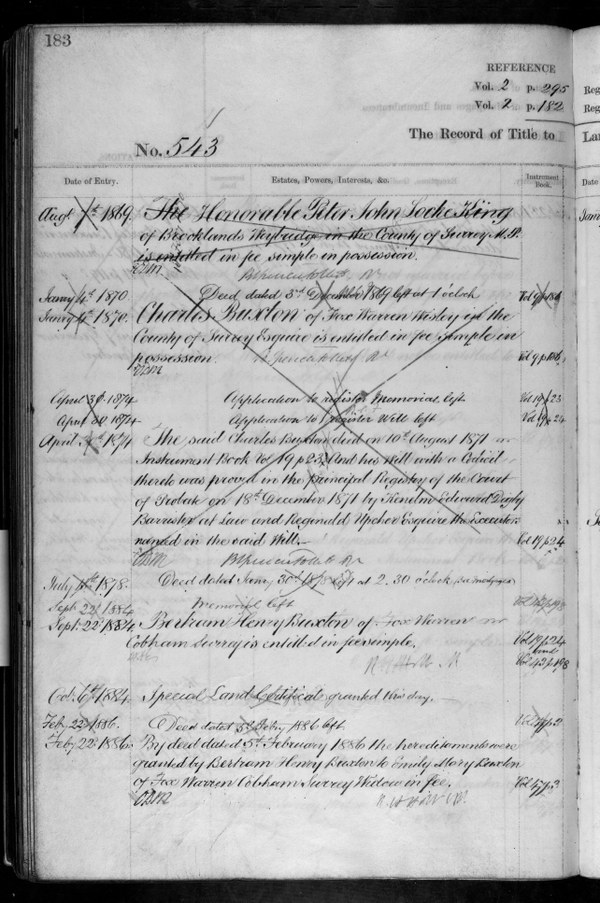 183
REFERENCE
Vol. 2 p. 295
Vol. 2 p. 182
The Record of Title to
No. 543
Date of Entry.
Estates, Powers, Interests, &c.
Instrument Book.
Augt 7th 1869. The Honorable Peter John Locke King
of Brocklands Weybridge in the County of Surrey M.P.
is entitled in fee simple in possession.
Janry 4th 1870 Deed dated 3d December 1869 left at 1 o'clock
Janry 4th 1870. Charles Buxton of Fox Warren Wisley in the
County of Surrey Esquire is entitled in fee simple in
possession. Vol 9 p 186
April 30 1874 Application to register Memorial left Vol 19 p 23
April 30 1874 Application to register Will left Vol 19 p 24
April 30th 1874 The said Charles Buxton died on 10th August 1871
Instrument Book Vol 19 p 23. And his Will with a Codicil
thereto was proved in the Principal Registry of the Court
of Probate on 18th December 1871 by Kenelm Edward Digby
Barrister at Law and Reginald Upcher Esquire the Executors
named in the said Will. Vol 19 p 24
July 1878. Deed dated Janry 30th 1878 left at 2.30 o'clock
Sept. 22d 1884 Memorial left
Sept. 22d 1884 Bertram Henry Buxton of Fox Warren
Cobham Surrey is entitled in fee simple. Vol 19 p 24
and
Vol 42 p 198
Oct. 6th 1884. Special Land Certificate granted this day.
Feb. 22d 1886. Deed dated 5th Febry 1886 left
Feby 22d 1886. By deed dated 5th February 1886 the hereditaments were
granted by Bertram Henry Buxton to Emily Mary Buxton
of Fox Warren Cobham Surrey Widow in fee. Vol 47 p 2
Reg
Reg
Lan
Date